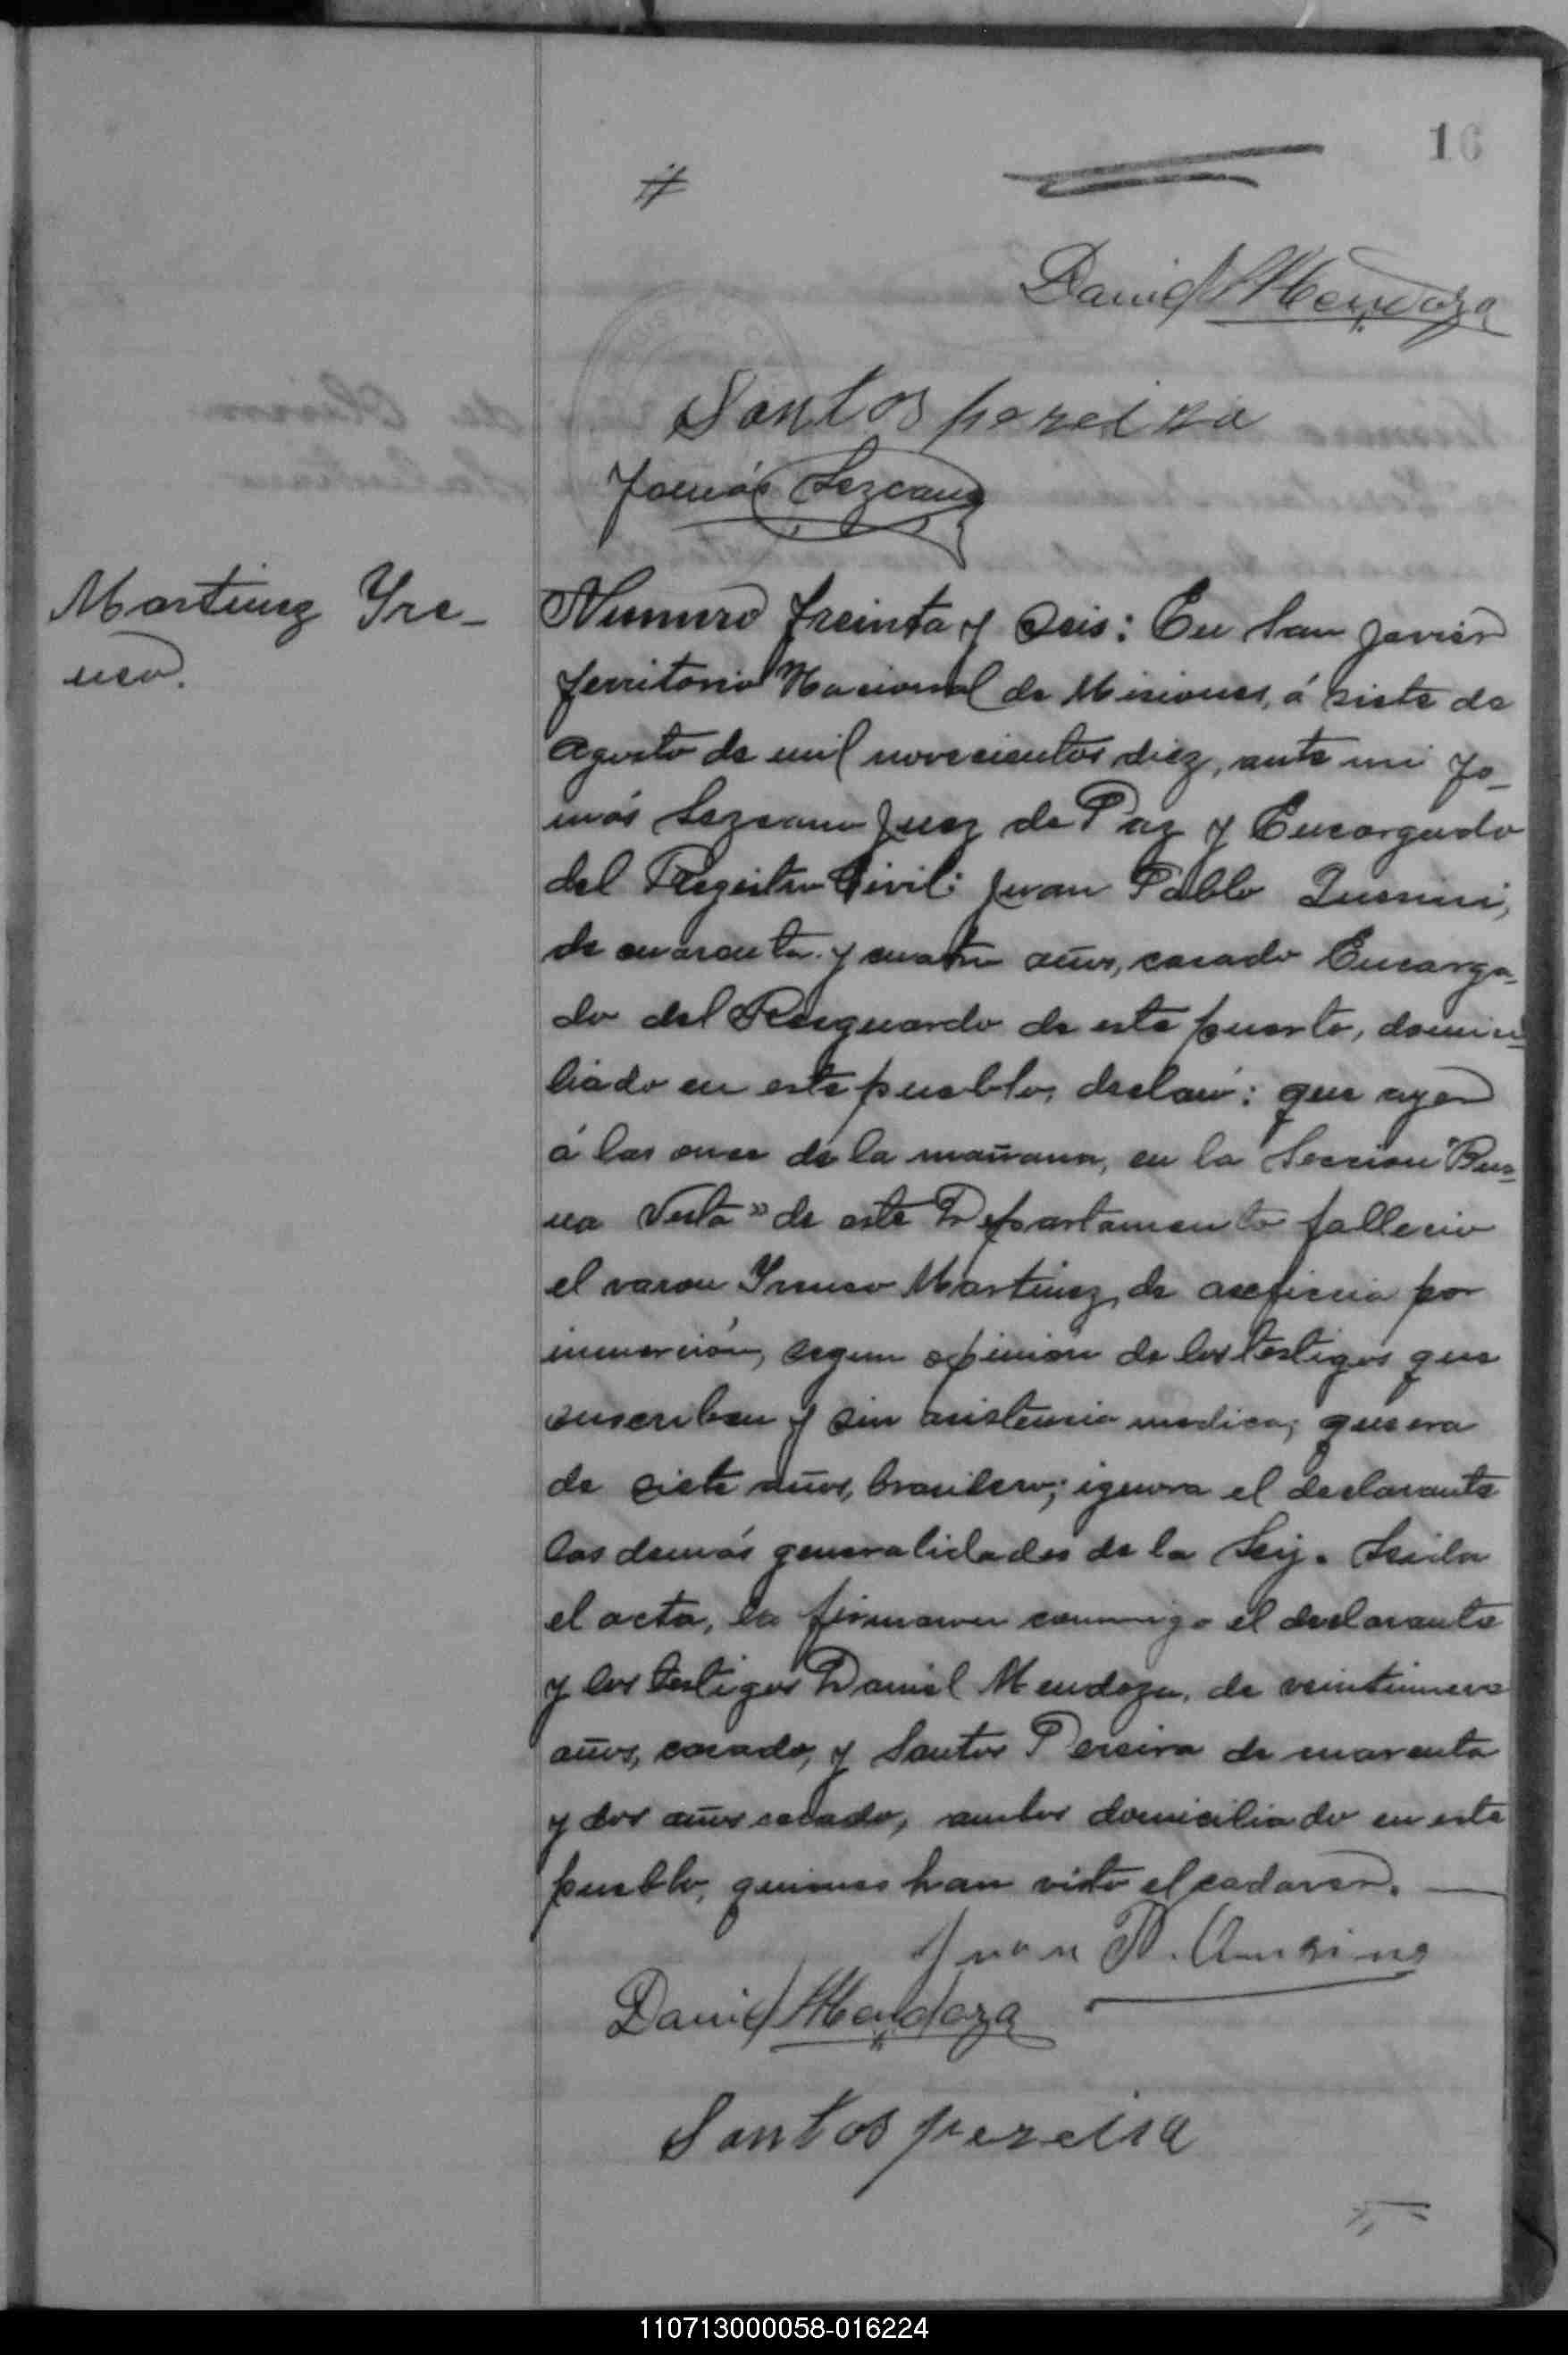 16
Daniel Mendoza
Santos pereira
Tomás Lezcano
Martinez Ire-
neo.
Numero Treinta y Seis: En San Javier
Territorio Nacional de Misiones, á siete de
Agosto de mil novecientos diez, ante mi To-
más Lezcano Juez de Paz y Encargado
del Registro Civil: Juan Pablo
de cuarenta y cuatro años, casado Encarga-
do del Resguardo de este puerto, domici-
liado en este pueblo, declaró: que ayer
á las once de la mañana, en la Seccion "Bue-
na Vista" de este Departamento fallecio
el varon Ireneo Martinez, de axficia por
inmerción, segun opinión de los testigos que
suscriben y sin asistencia medica; que era
de siete años, brasilero; ignora el declarante
las demás generalidades de la Ley. Leida
el acta, la firmaron conmigo el declarante
y los testigos Daniel Mendoza, de veintinueve
años, casado, y Santos Pereira de cuarenta
y dos años casado, ambos domiciliado en este
pueblo, quienes han visto el cadaver.
Juan P.
Daniel Mendoza
Santos pereira
110713000058-016224